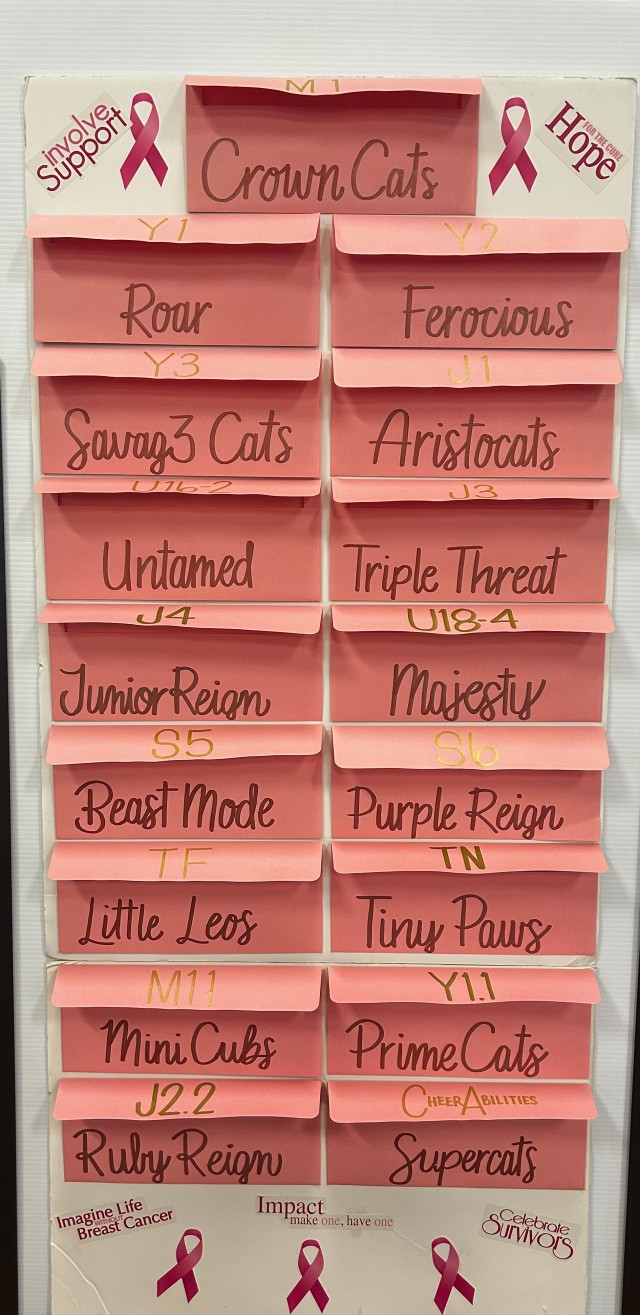 Involve
Support
M1
Crown Cats
Hope
FOR THE CURE
Y1
Roar
Y2
Ferocious
Y3
Savag3 Cats
J1
Aristocats
U16-2
Untamed
J3
Triple Threat
J4
Junior Reign
U18-4
Majesty
S5
Beast Mode
S6
Purple Reign
TF
Little Leos
TN
Tiny Paws
M1.1
Mini Cubs
Y1.1
Prime Cats
J2.2
Ruby Reign
CHEERABILITIES
Supercats
Imagine Life
WITHOUT
Breast Cancer
Impact
make one, have one
Celebrate
Survivors